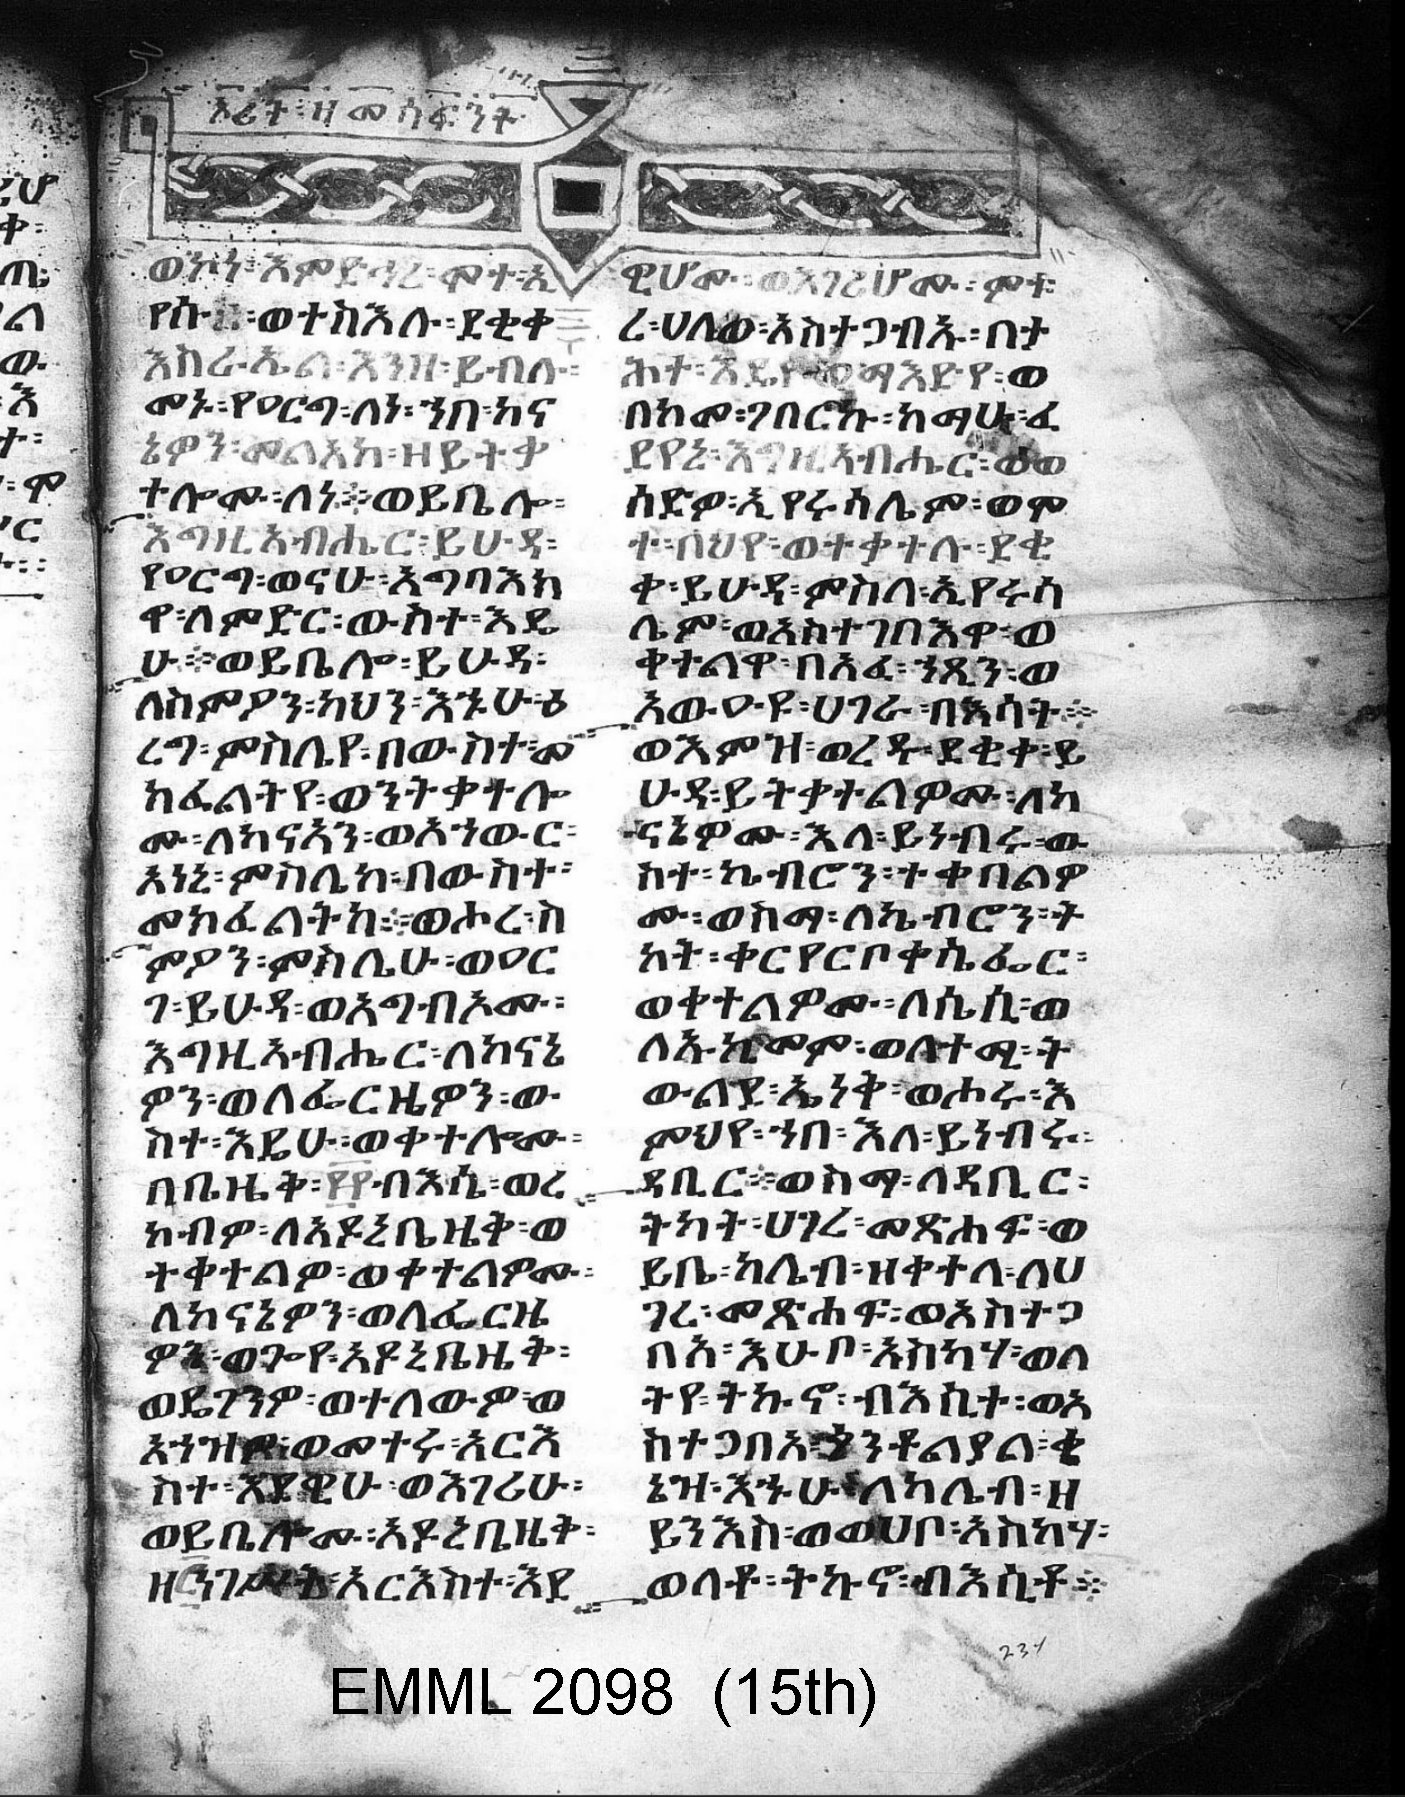 ኦሪት፡ዘመሳፍንት
ወኮነ፡እምድኅረ፡ሞተ፡ኢ
የሱ፡ወተስእሉ፡ደቂቀ
እስራኤል፡እንዘ፡ይብሉ፡
መኑ፡የዐርግ፡ለነ፡ኀበ፡ከና
ኔዎን፡መልአከ፡ዘይትቃ
ተሎሙ፡ለነ፨ወይቤሎ፡
እግዚአብሔር፡ይሁዳ፡
የዐርግ፡ወናሁ፡አግባእክ
ዋ፡ለምድር፡ውስተ፡እዴ
ሁ፨ወይቤሎ፡ይሁዳ፡
ለስምዖን፡ካህን፡እኁሁ፡ዕ
ረግ፡ምስሌየ፡በውስተ፡መ
ክፈልትየ፡ወንትቃተሎ
ሙ፡ለከናኣን፡ወአኀውር፡
አነኒ፡ምስሌከ፡በውስተ፡
መክፈልትከ፨ወሖረ፡ስ
ምዖን፡ምስሌሁ፡ወዐር
ገ፡ይሁዳ፡ወአግብኦሙ፡
እግዚአብሔር፡ለከናኔ
ዎን፡ወለፌርዜዎን፡ው
ስተ፡እዴሁ፡ወቀተሎሙ፡
በቤዜቅ፡፻፻ብእሲ፡ወረ
ከብዎ፡ለአዶኒቤዜቅ፡ወ
ተቀተልዎ፡ወቀተልዎሙ፡
ለከናኔዎን፡ወለፌርዜ
ዎን፡ወጐየ፡አዶኒቤዜቅ፡
ወዴገንዎ፡ወተለውዎ፡ወ
አኀዝዎ፡ወመተሩ፡አርእ
ስተ፡እደዊሁ፡ወእገሪሁ፡
ወይቤሎሙ፡አዶኒቤዜቅ፡
አርእስተ፡እደ
ዊሆሙ፡ወእገሪሆሙ፡ምቱ
ረ፡ሀለው፡አስተጋብኡ፡በታ
ሕተ፡ማእድየ፡ወ
በከመ፡ገበርኩ፡ከማሁ፡ፈ
ደየኒ፡እግዚአብሔር፡ወወ
ሰድዎ፡ኢየሩሳሌም፡ወሞ
ተ፡በህየ፡ወተቃተሉ፡ደቂ
ቀ፡ይሁዳ፡ምስለ፡ኢየሩሳ
ሌም፡ወአስተገበእዋ፡ወ
ቀተልዋ፡በአፈ፡ኀፂን፡ወ
አውዐዩ፡ሀገራ፡በእሳት፨
ወእምዝ፡ወረዱ፡ደቂቀ፡ይ
ሁዳ፡ይትቃተልዎሙ፡ለከ
ናኔዎሙ፡እለ፡ይነብሩ፡ው
ስተ፡ኬብሮን፡ተቀበልዎ
ሙ፡ወስማ፡ለኬብሮን፡ት
ካት፡ቀርየርቦቀሴፌር፡
ወቀተልዎሙ፡ለሴሲ፡ወ
ለአኪመም፡ወለተሚ፡ት
ውልደ፡ኤነቅ፡ወሖሩ፡እ
ምህየ፡ኀበ፡እለ፡ይነብሩ፡
ዳቢር፨ወስማ፡ለዳቢር፡
ትካት፡ሀገረ፡መጽሐፍ፡ወ
ይቤ፡ካሌብ፡ዘቀተለ፡ለሀ
ገረ፡መጽሐፍ፡ወአስተጋ
በአ፡እሁቦ፡አስካሃ፡ወለ
ትየ፡ትኩኖ፡ብእሲተ፡ወአ
ስተጋበአ፡ጎንቶልያል፡ቄ
ኔዝ፡እኁሁ፡ለካሌብ፡ዘ
ይንእስ፡ወወሀቦ፡አስካሃ፡
ወለቶ፡ትኩኖ፡ብእሲቶ፨
EMML 2098 (15th)